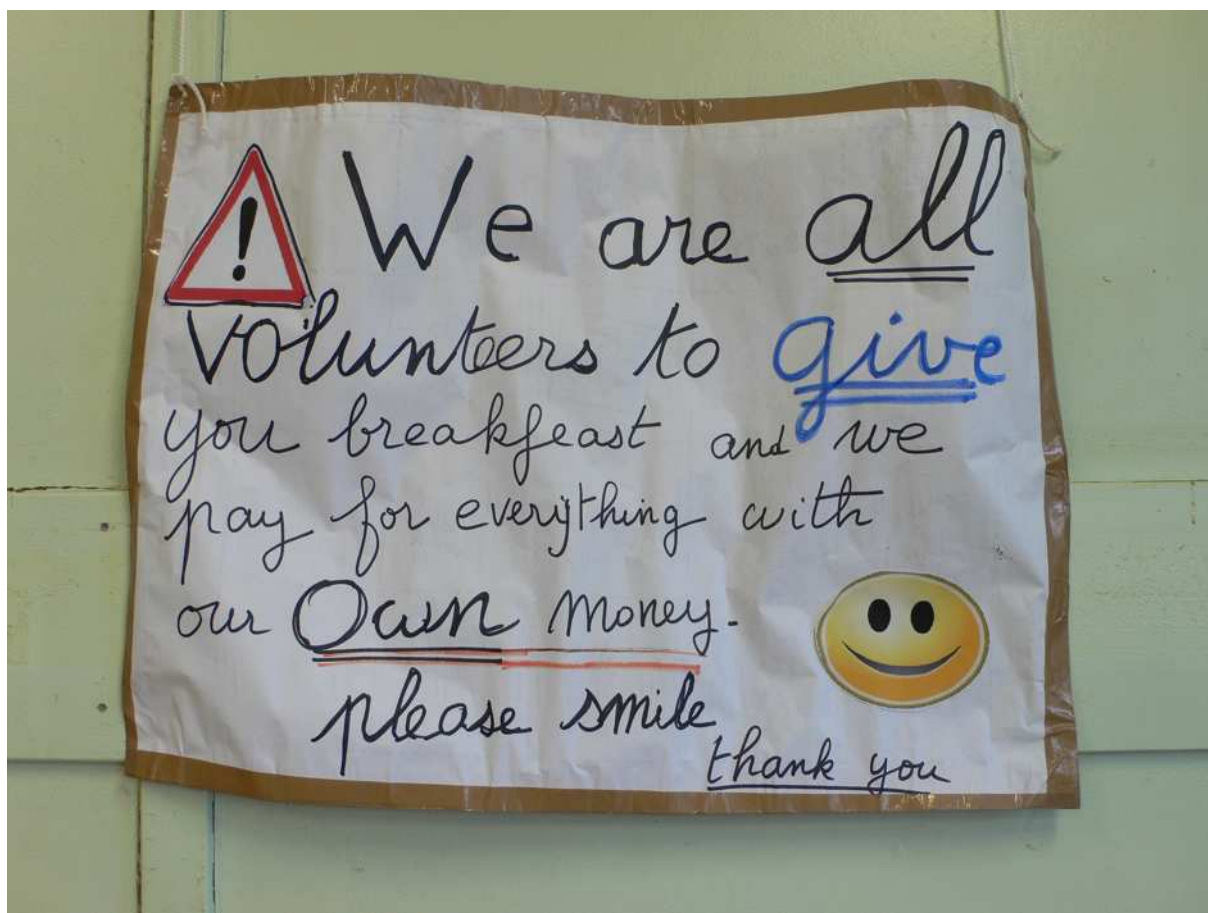 ! We are all
volunteers to give
you breakfeast and we
pay for everything with
our Own money.
please smile
thank you